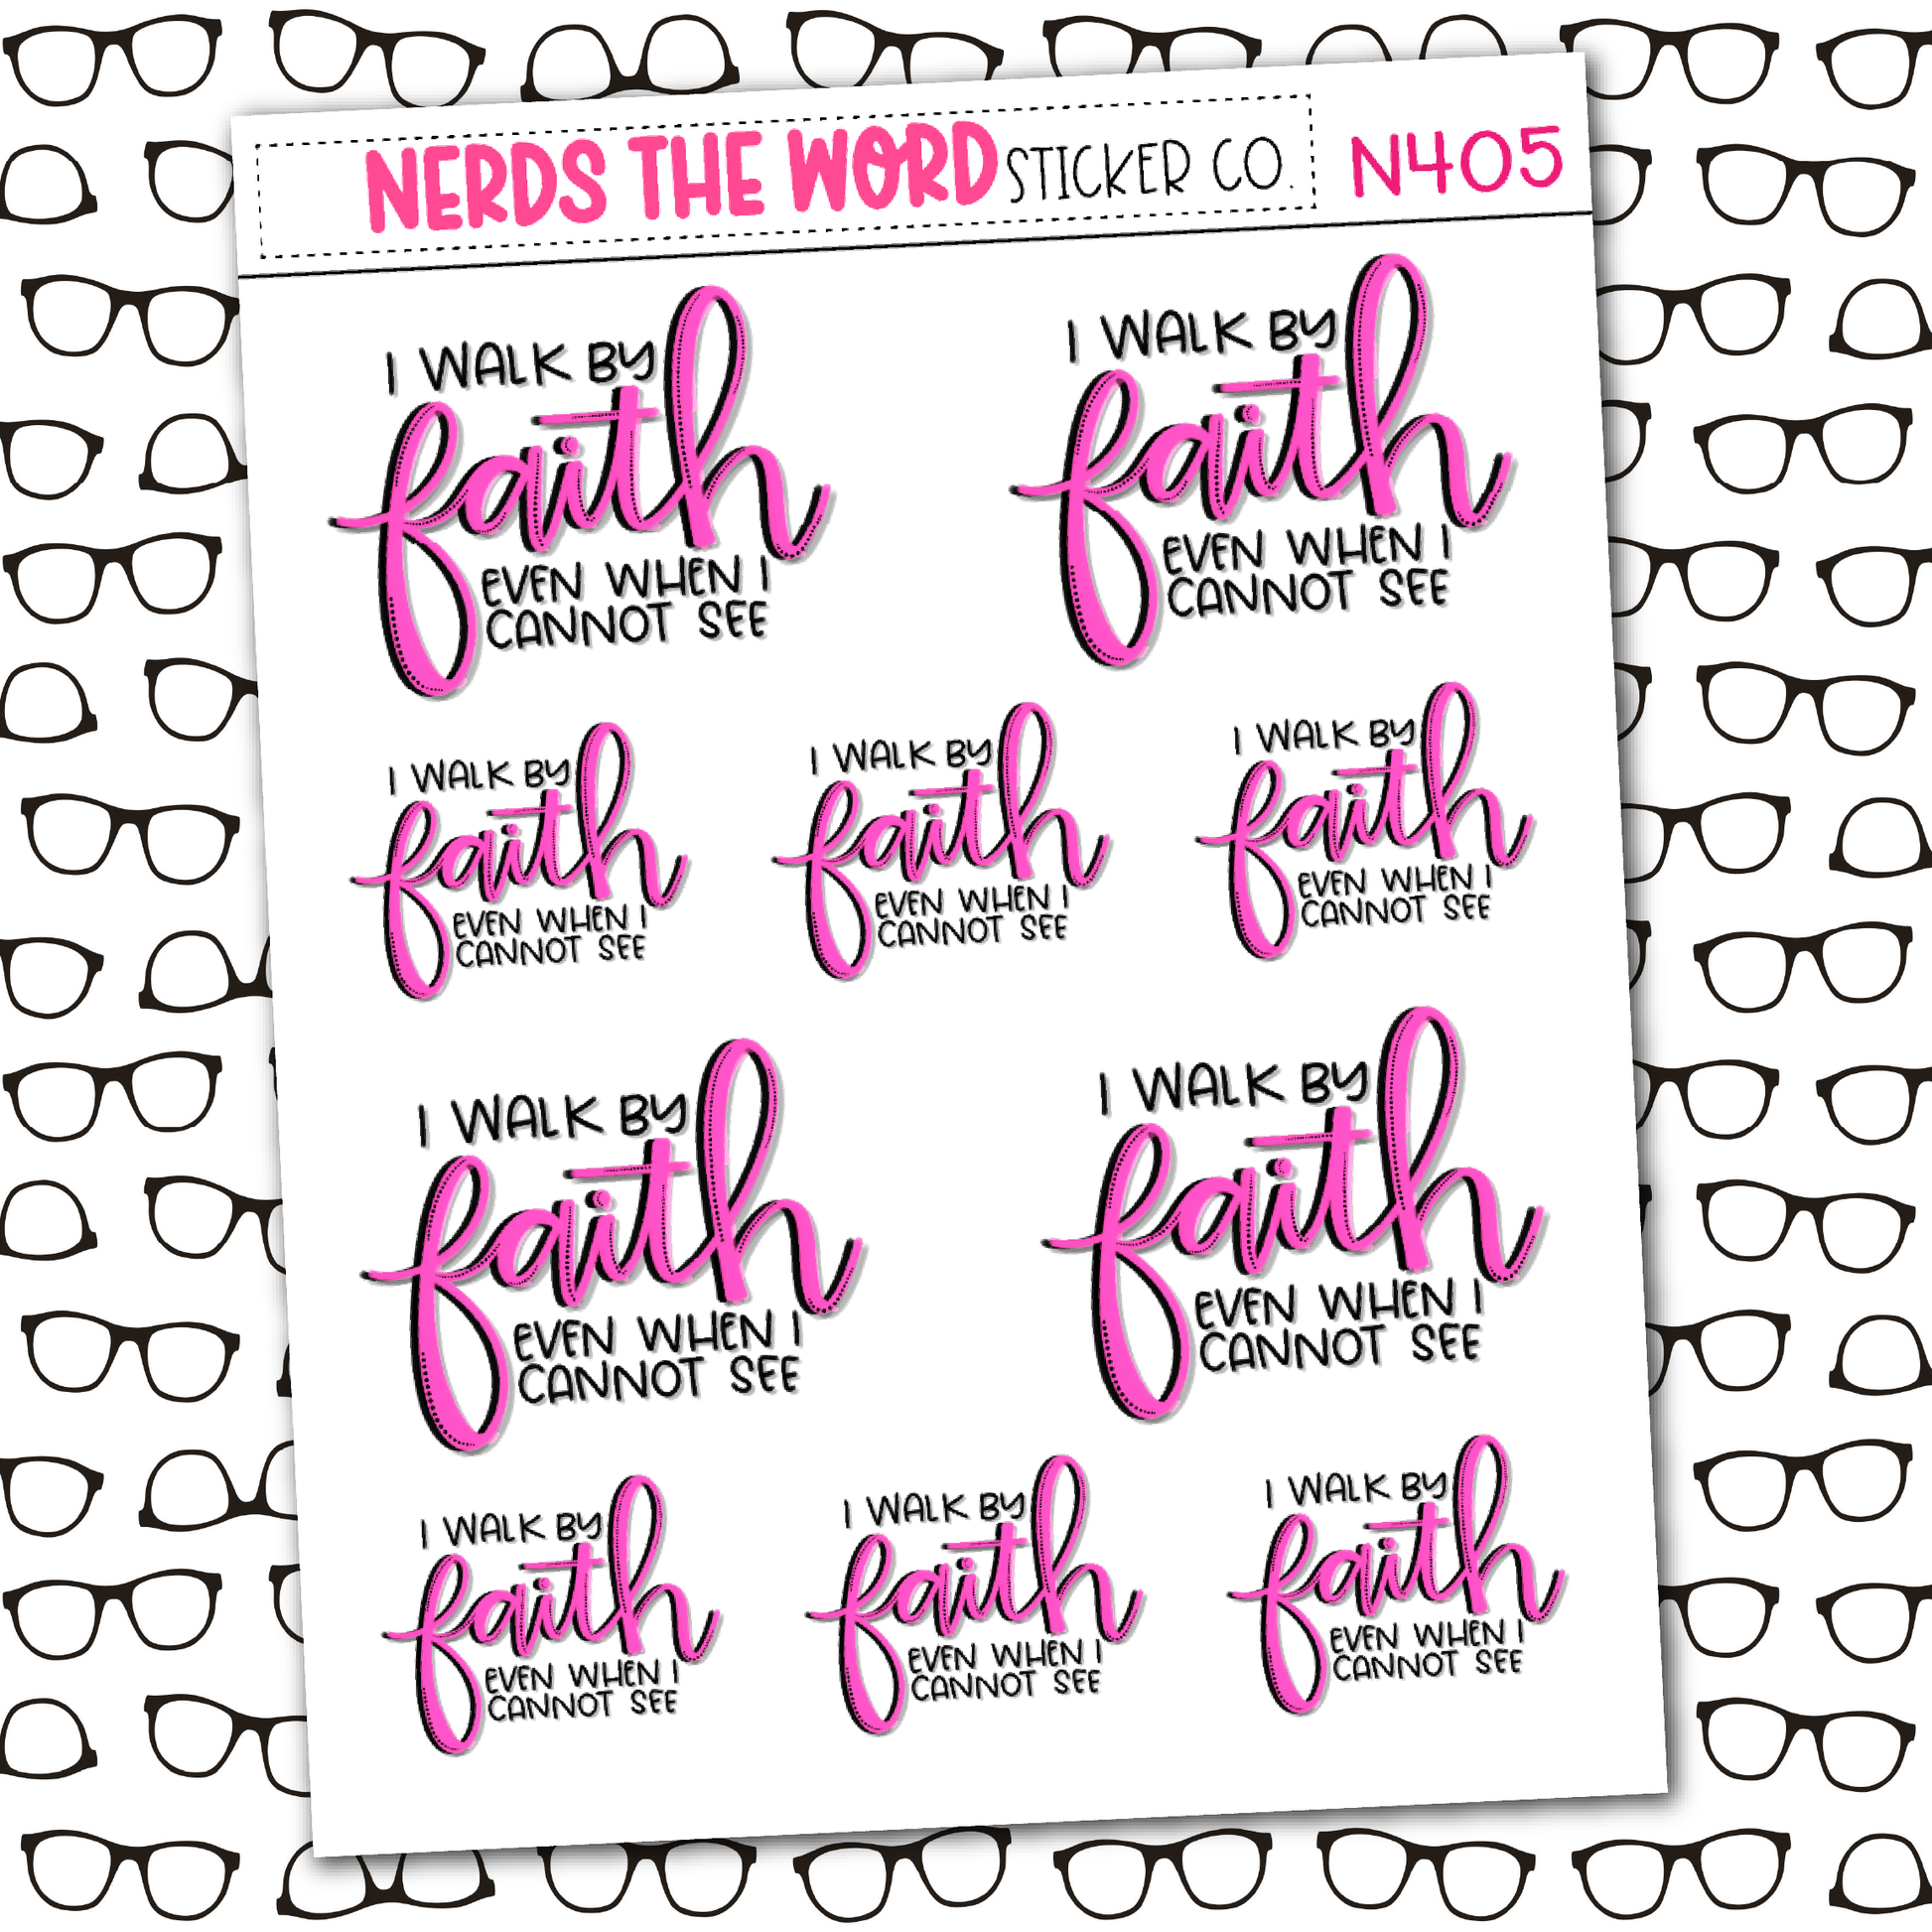 NERDS THE WORD STICKER CO. N405
I WALK BY
faith
EVEN WHEN I
CANNOT SEE
I WALK BY
faith
EVEN WHEN I
CANNOT SEE
I WALK BY
faith
EVEN WHEN I
CANNOT SEE
I WALK BY
faith
EVEN WHEN I
CANNOT SEE
I WALK BY
faith
EVEN WHEN I
CANNOT SEE
I WALK BY
faith
EVEN WHEN I
CANNOT SEE
I WALK BY
faith
EVEN WHEN I
CANNOT SEE
I WALK BY
faith
EVEN WHEN I
CANNOT SEE
I WALK BY
faith
EVEN WHEN I
CANNOT SEE
I WALK BY
faith
EVEN WHEN I
CANNOT SEE